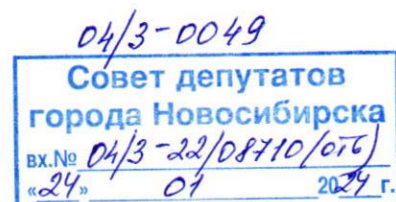 04/3-0049
Совет депутатов
города Новосибирска
вх.№ 04/3-22/08710/отв)
«24» 01 2024 г.